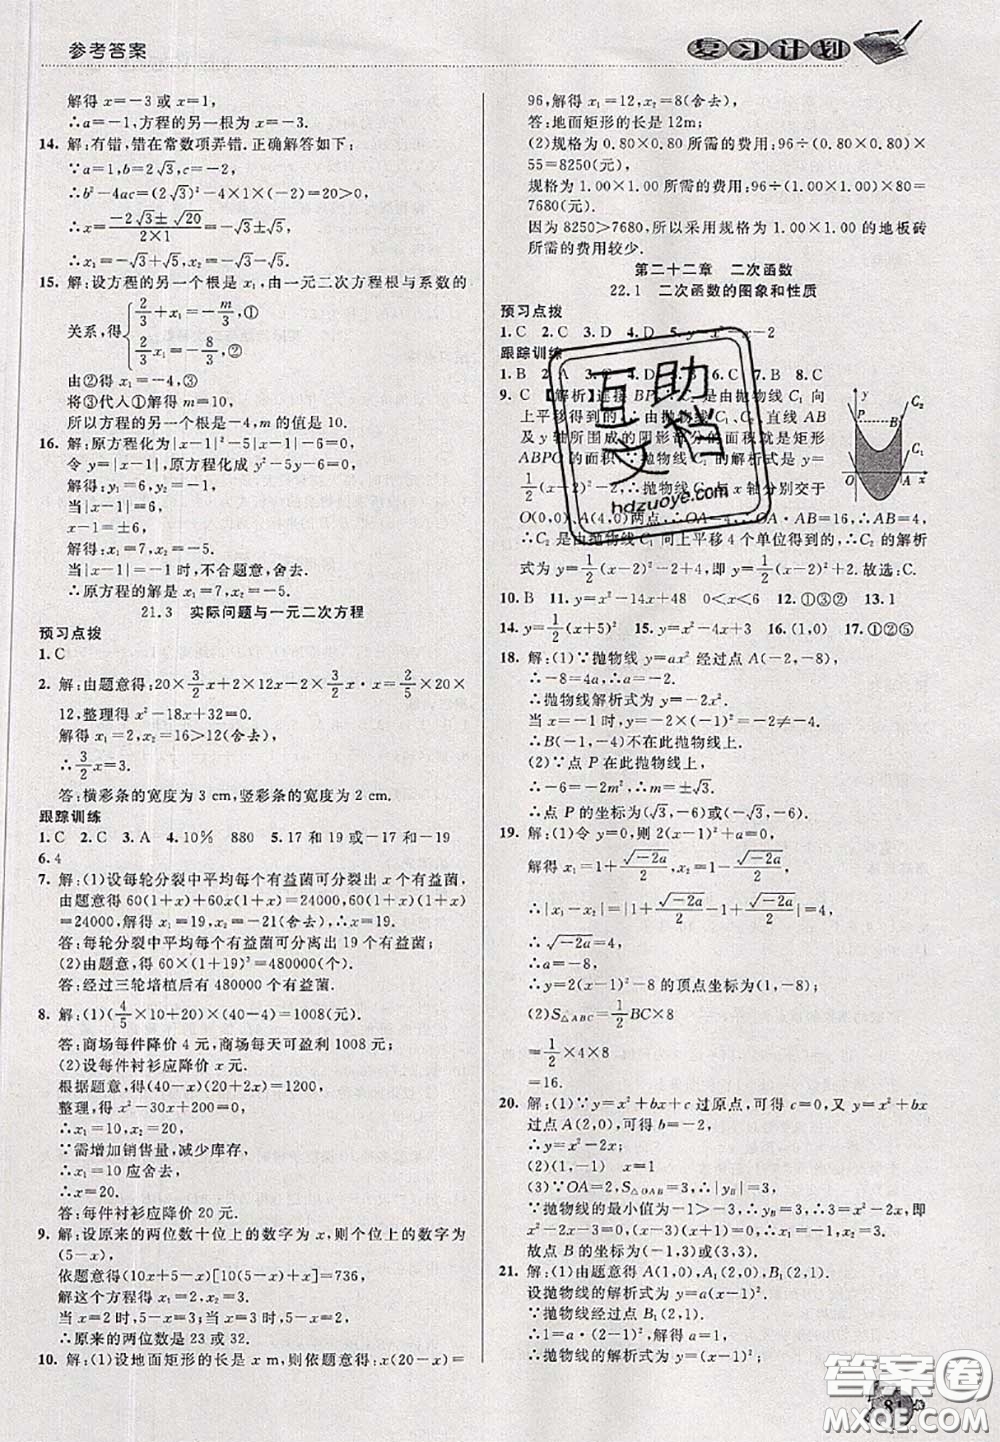 参考答案
复习计划
解得 x=-3或 x=1,
∴a=-1,方程的另一根为 x=-3.
14. 解:有错,错在常数项弄错.正确解答如下:
∵a=1,b=2√3,c=-2,
∴b²-4ac=(2√3)²-4×1×(-2)=20>0,
∴x=(-2√3±√20)/(2×1)=-√3±√5,
∴x₁=-√3+√5,x₂=-√3-√5.
15. 解:设方程的另一个根是 x₁,由一元二次方程根与系数的
关系,得{2/3+x₁=-m/3,①
2/3x₁=-8/3,②
由②得解得 x₁=-4,③
将③代人①解得 m=10,
所以方程的另一个根是-4,m的值是10.
16. 解:原方程化为|x-1|²-5|x-1|-6=0,
令 y=|x-1|,原方程化成 y²-5y-6=0,
解得:y₁=6,y₂=-1.
当|x-1|=6,
x-1=±6,
解得:x₁=7,x₂=-5.
当|x-1|=-1时,不合题意,舍去.
∴原方程的解是 x₁=7,x₂=-5.
21.3 实际问题与一元二次方程
预习点拨
1.C
2. 解:由题意得:20×3/2x+2×12x-2×3/2x·x=2/5×20×
12,整理得 x²-18x+32=0.
解得 x₁=2,x₂=16>12(舍去),
∴3/2x=3.
答:横彩条的宽度为 3 cm,竖彩条的宽度为 2 cm.
跟踪训练
1.C 2.C 3.A 4.10% 880 5.17 和 19 或-17 和-19
6.4
7. 解:(1)设每轮分裂中平均每个有益菌可分裂出 x 个有益菌,
由题意得60(1+x)+60x(1+x)=24000,即60(1+x)²
=24000,解得 x₁=19,x₂=-21(舍去),∴x=19.
答:每轮分裂中平均每个有益菌可分离出 19 个有益菌;
(2)由题意,得 60×(1+19)³=480000(个).
答:经过三轮培植后有 480000 个有益菌.
8. 解:(1)(4/5×10+20)×(40-4)=1008(元).
答:商场每件降价 4 元,商场每天可盈利 1008 元;
(2)设每件衬衫应降价 x 元.
根据题意,得(40-x)(20+2x)=1200,
整理,得 x²-30x+200=0,
∴x₁=10,x₂=20,
∵需增加销售量,减少库存,
∴x₁=10应舍去,
∴x=20.
答:每件衬衫应降价 20 元.
9. 解:设原来的两位数十位上的数字为 x,则个位上的数字为
(5-x),
依题意得(10x+5-x)[10(5-x)+x]=736,
解这个方程得 x₁=2,x₂=3,
当 x=2时,5-x=3;当 x=3时,5-x=2,
∴原来的两位数是 23 或 32.
10. 解:(1)设地面矩形的长是 x m,则依题意得:x(20-x)=
96,解得 x₁=12,x₂=8(舍去),
答:地面矩形的长是 12m;
(2)规格为 0.80×0.80 所需的费用:96÷(0.80×0.80)×
55=8250(元).
规格为 1.00×1.00 所需的费用:96÷(1.00×1.00)×80=
7680(元).
因为 8250>7680,所以采用规格为 1.00×1.00 的地板砖
所需的费用较少.
第二十二章 二次函数
22.1 二次函数的图象和性质
预习点拨
1.C 2.C 3.D 4.D 5.y=x²-x-2
跟踪训练
1.B 2.A 3.C 4.D 5.B 6.D 7.B 8.C
9. C 【解析】连接 BP,∵C₂是由抛物线 C₁向
上平移得到的,∴由抛物线 C₁、C₂、直线 AB
及 y 轴所围成的阴影部分的面积就是矩形
ABPO的面积.∵抛物线 C₁的解析式是 y=
1/2(x-2)²-2,∴抛物线 C₁与 x 轴分别交于
O(0,0)、A(4,0)两点,∴OA=4,∴OA·AB=16,∴AB=4,
∴C₂是由抛物线 C₁向上平移4个单位得到的,∴C₂的解析
式为 y=1/2(x-2)²-2+4,即 y=1/2(x-2)²+2.故选:C.
y P B C₂ C₁ O A x
10.B 11.y=x²-14x+48 0<x<6 12.①③② 13.1
14.y=1/2(x+5)² 15.y=x²-4x+3 16.(1,0) 17.①②⑤
18. 解:(1)∵抛物线 y=ax²经过点A(-2,-8),
∴-8=4a,∴a=-2,
∴抛物线解析式为 y=-2x².
当 x=-1时,y=-2×(-1)²=-2≠-4.
∴B(-1,-4)不在此抛物线上.
(2)∵点 P 在此抛物线上,
∴-6=-2m²,∴m²=3,∴m=±√3.
∴点 P 的坐标为(√3,-6)或(-√3,-6).
19. 解:(1)令 y=0,则 2(x-1)²+a=0,
解得 x₁=1+√(-2a)/2,x₂=1-√(-2a)/2,
∴|x₁-x₂|=|1+√(-2a)/2-1+√(-2a)/2|=4,
∴√(-2a)=4,
∴a=-8,
∴y=2(x-1)²-8的顶点坐标为(1,-8);
(2)S△ABC=1/2BC×8
=1/2×4×8
=16.
20. 解:(1)∵y=x²+bx+c过原点,可得 c=0,又 y=x²+bx
过点A(2,0),可得 b=-2,
∴y=x²-2x;
(2)(1,-1) x=1
(3)∵OA=2,S△OAB=3,∴|yB|=3,
∵抛物线的最小值为-1>-3,∴yB=3,∴x²-2x=3,
∴x²-2x-3=0,(x-3)(x+1)=0,∴x=-1或 x=3.
故点 B 的坐标为(-1,3)或(3,3).
21. 解:(1)由题意得 A(1,0),A₁(2,0),B₁(2,1).
设抛物线的解析式为 y=a(x-1)²,
∵抛物线经过点 B₁(2,1).
∴1=a(2-1)²,解得 a=1,
∴抛物线的解析式为 y=(x-1)²;
81
互助文档
hdzuoye.com
答案圈
MXQE.COM